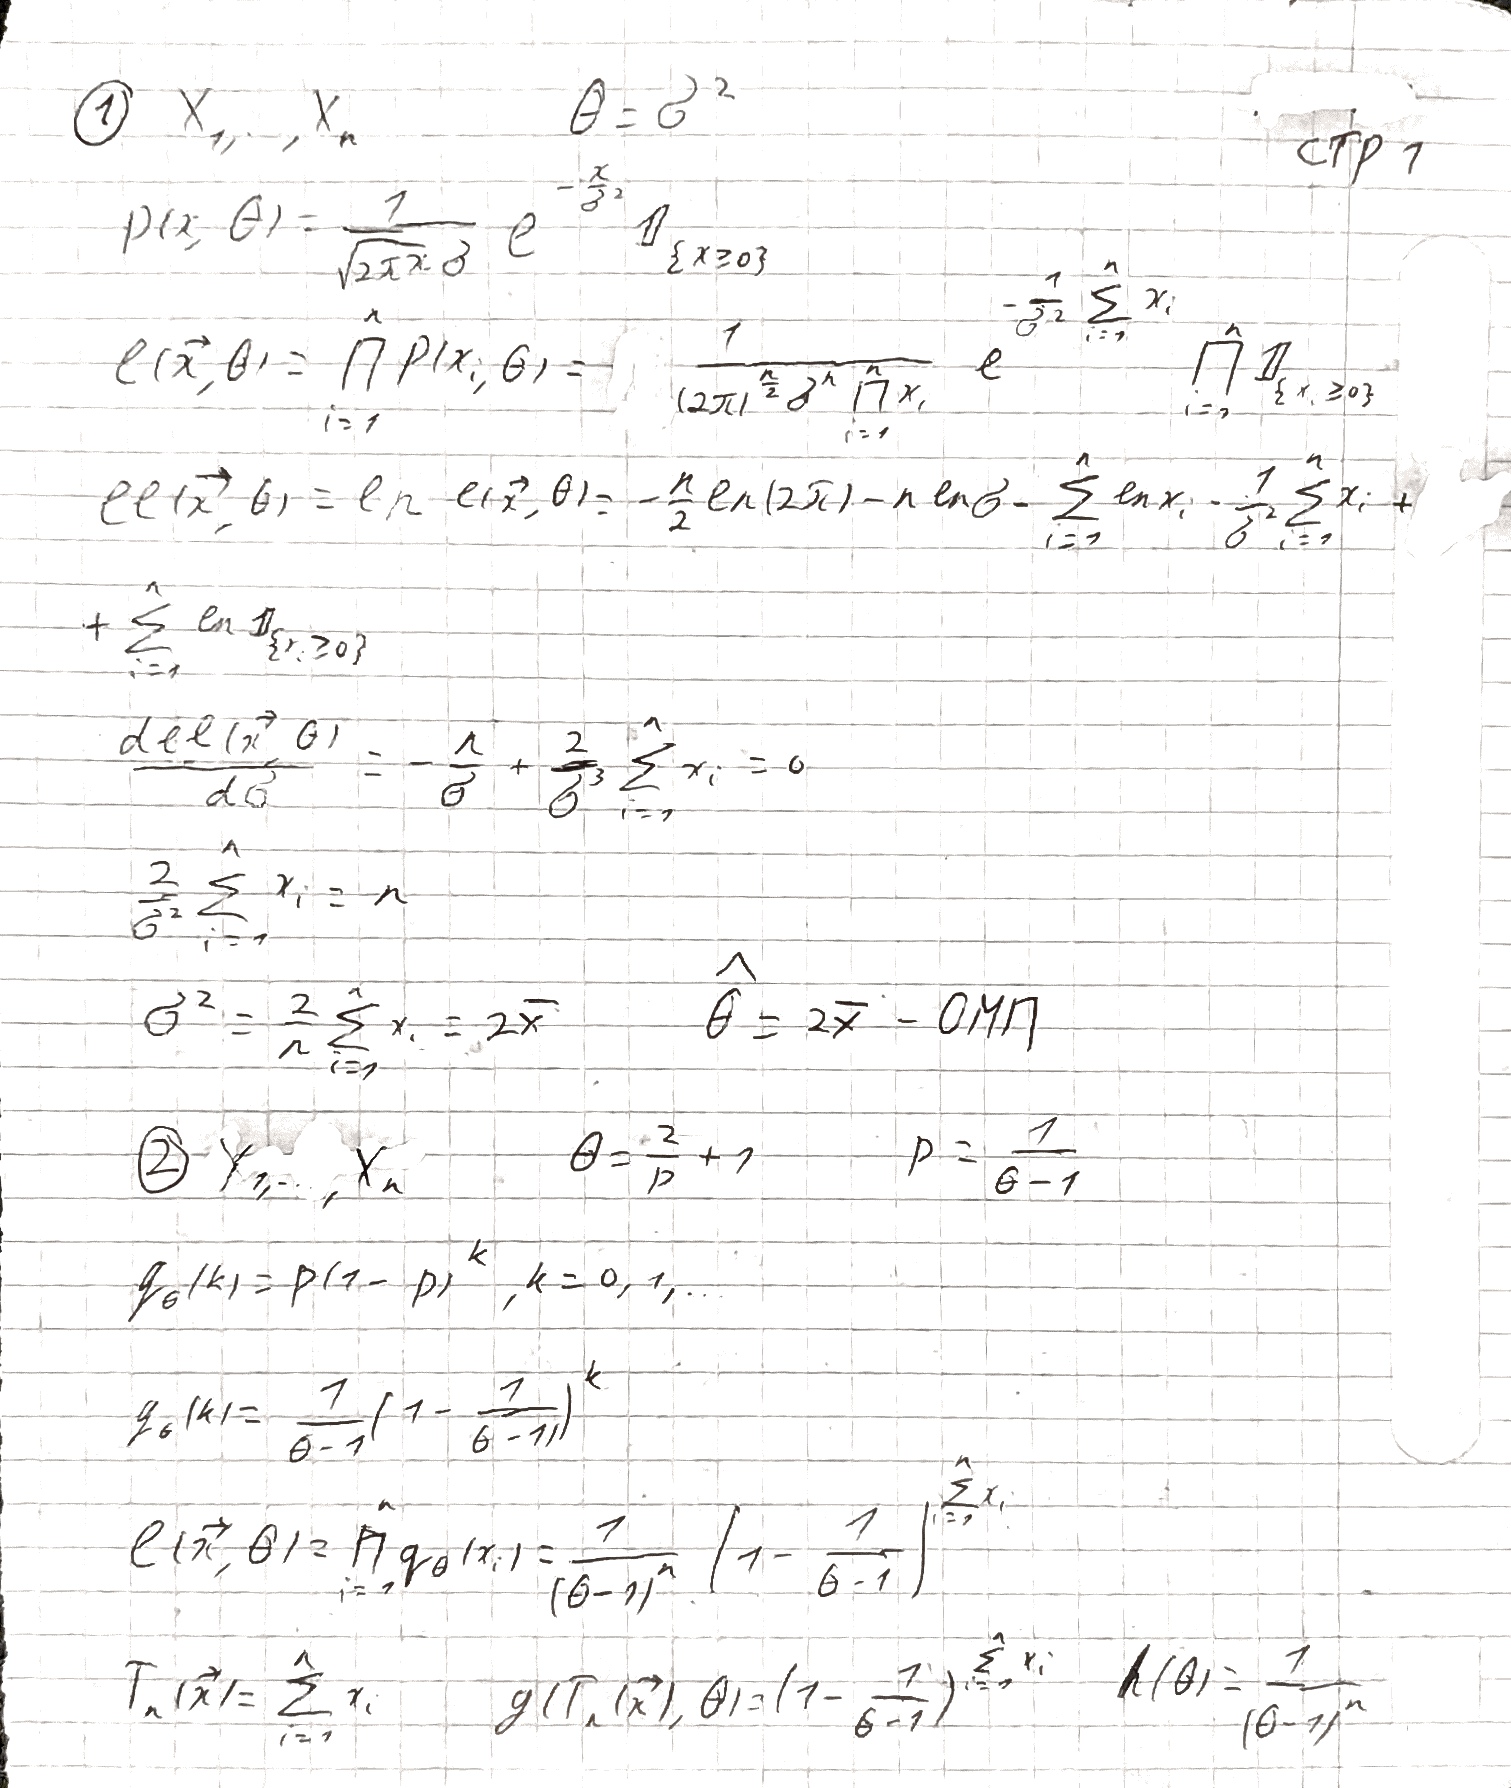 ① X₁,..,Xₙ θ = σ²
стр 1
p(x, θ) = 1/(√(2πx) σ) e^(-x/σ²) 𝟙_{x≥0}
l(x⃗, θ) = ∏_{i=1}^n p(xᵢ, θ) = 1/((2π)^(n/2) σⁿ ∏_{i=1}^n xᵢ) e^(-1/σ² ∑_{i=1}^n xᵢ) ∏_{i=1}^n 𝟙_{xᵢ≥0}
ll(x⃗, θ) = ln l(x⃗, θ) = -n/2 ln(2π) - n ln σ - ∑_{i=1}^n ln xᵢ - 1/σ² ∑_{i=1}^n xᵢ +
+ ∑_{i=1}^n ln 𝟙_{xᵢ≥0}
dll(x⃗, θ)/dσ = -n/σ + 2/σ³ ∑_{i=1}^n xᵢ = 0
2/σ² ∑_{i=1}^n xᵢ = n
σ² = 2/n ∑_{i=1}^n xᵢ = 2x̄ θ̂ = 2x̄ - ОМП
② X₁,..,Xₙ θ = 2/p + 1 p = 1/(θ-1)
q_θ(k) = p(1-p)^k, k = 0, 1,...
q_θ(k) = 1/(θ-1) (1 - 1/(θ-1))^k
l(x⃗, θ) = ∏_{i=1}^n q_θ(xᵢ) = 1/(θ-1)ⁿ (1 - 1/(θ-1))^(∑_{i=1}^n xᵢ)
Tₙ(x⃗) = ∑_{i=1}^n xᵢ g(Tₙ(x⃗), θ) = (1 - 1/(θ-1))^(∑_{i=1}^n xᵢ) h(θ) = 1/(θ-1)ⁿ